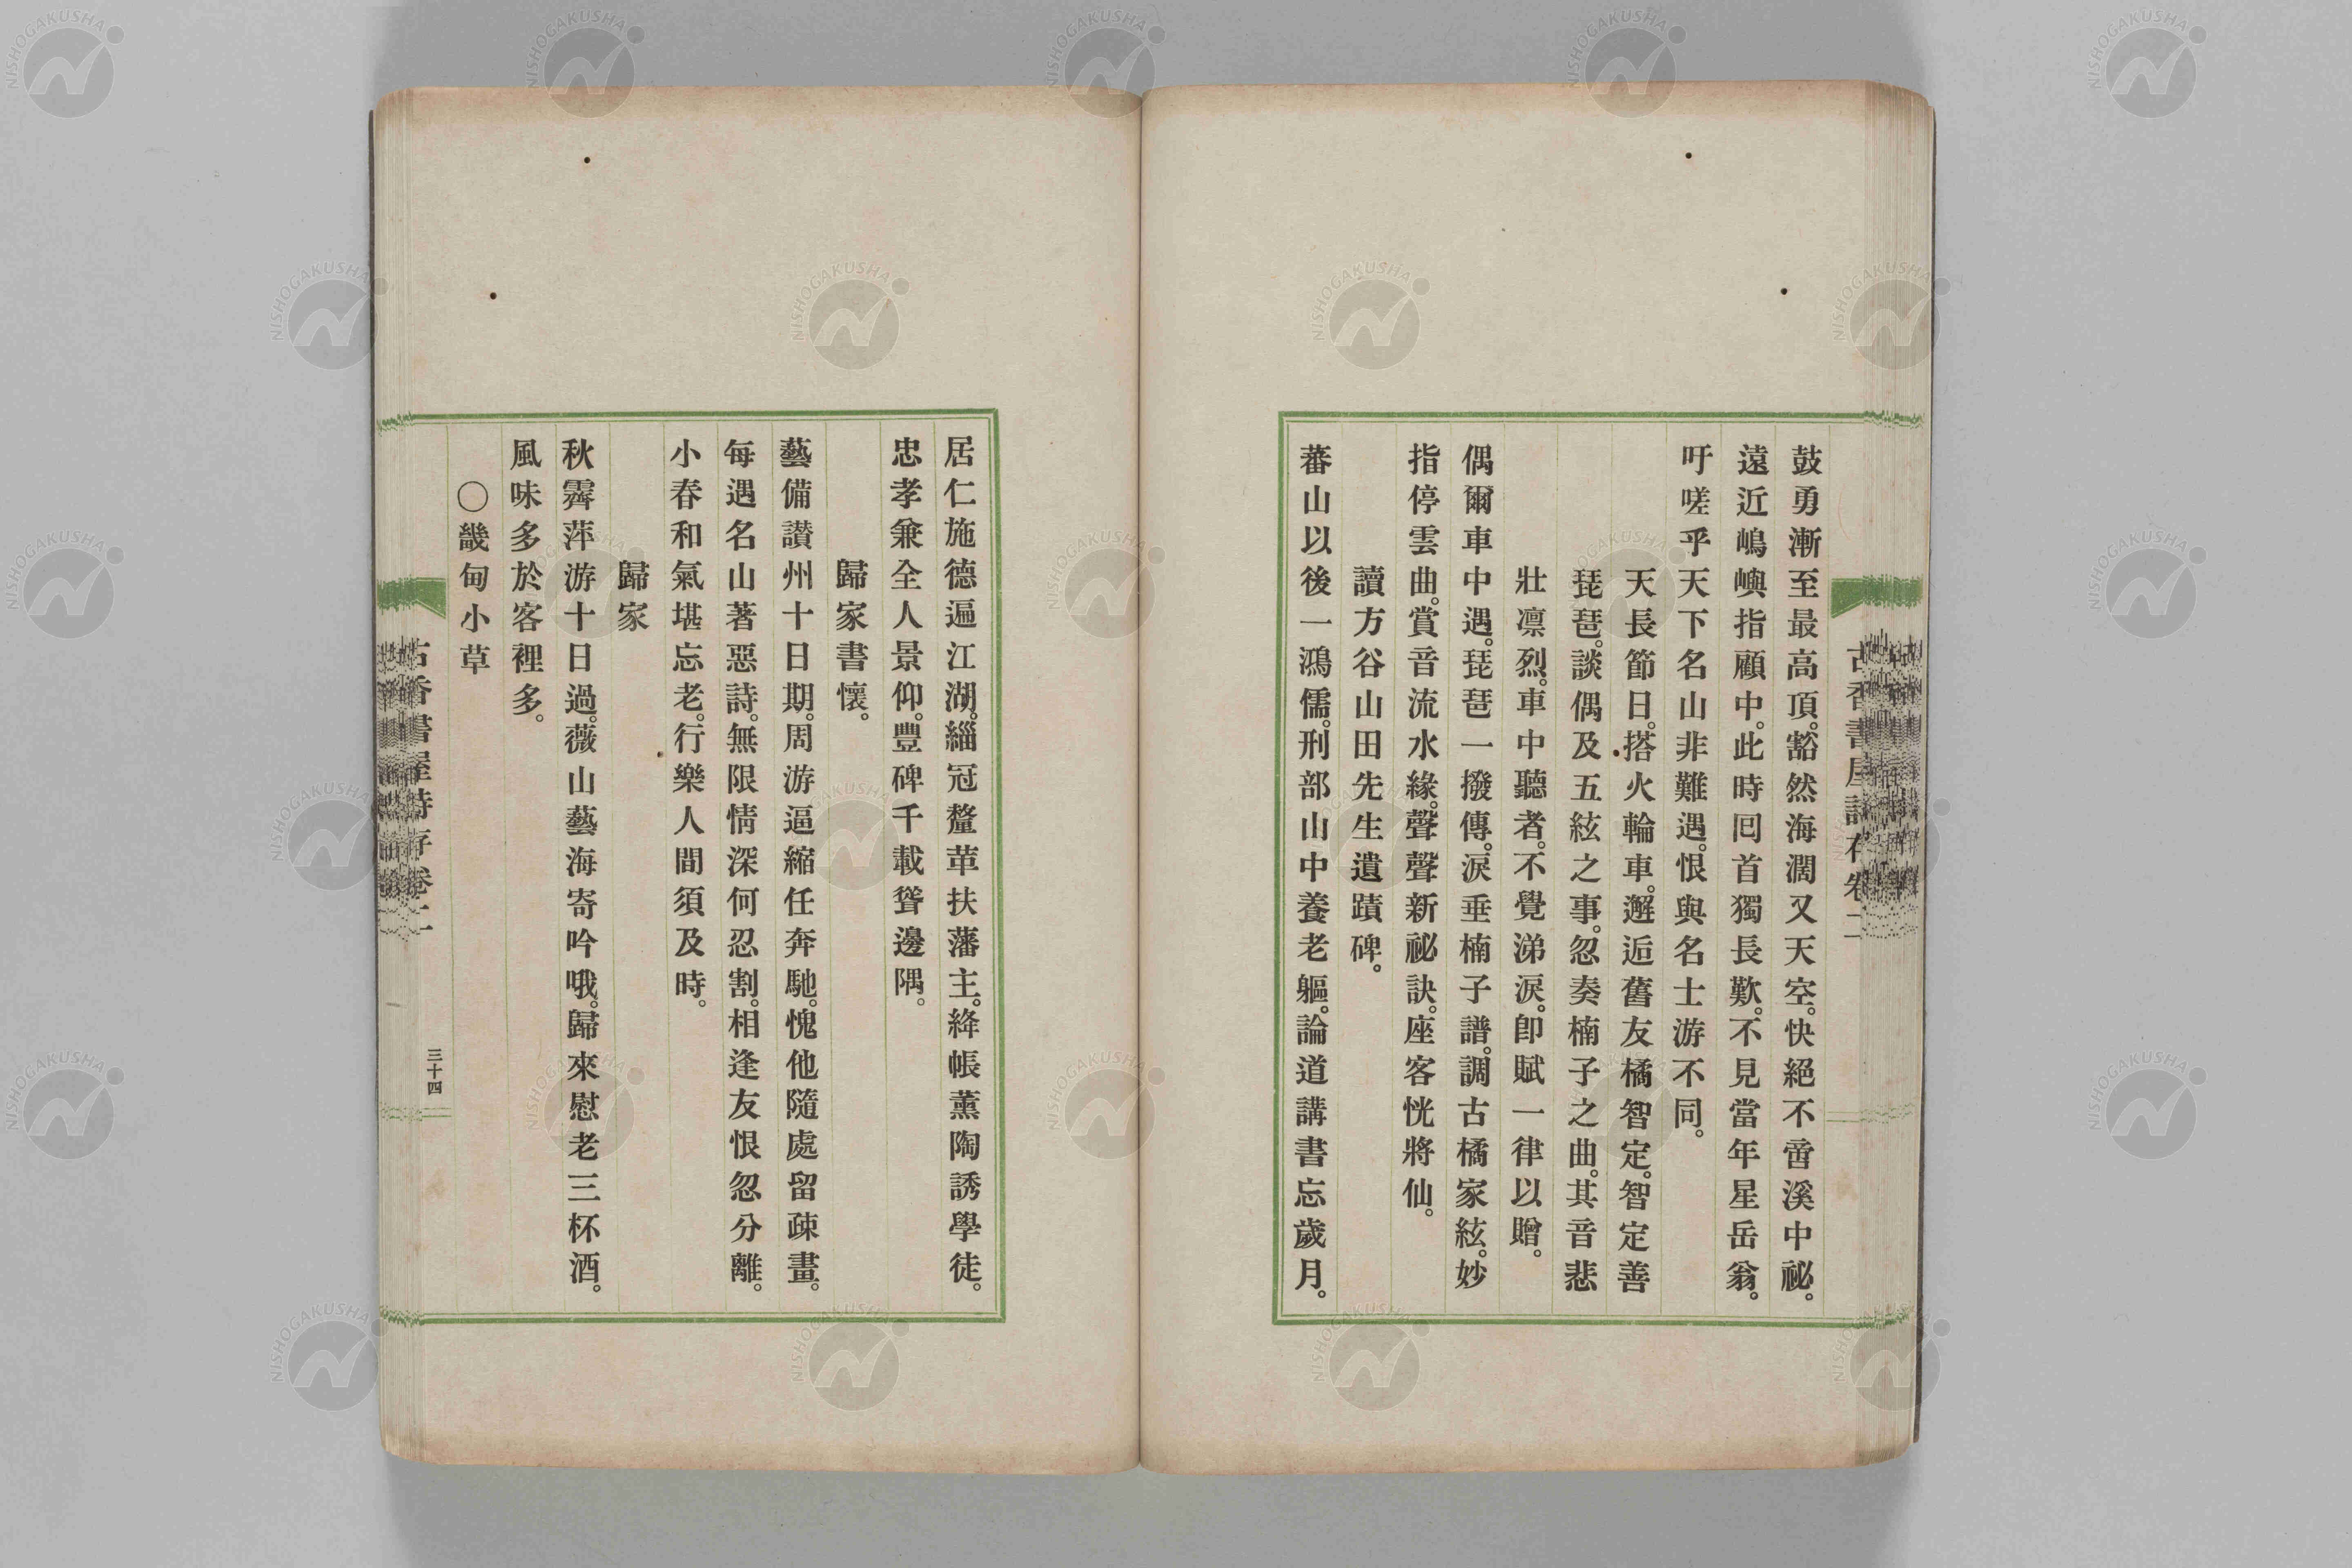 鼓勇漸至最高頂。豁然海濶又天空。快絕不啻溪中祕。
遠近嶋嶼指顧中。此時囘首獨長歎。不見當年星岳翁。
吁嗟乎天下名山非難遇。恨與名士游不同。
天長節日。搭火輪車。邂逅舊友橘智定。智定善
琵琶。談偶及五絃之事。忽奏楠子之曲。其音悲
壯凛烈。車中聽者。不覺涕淚。卽賦一律以贈。
偶爾車中遇。琵琶一撥傳。淚垂楠子譜。調古橘家絃。妙
指停雲曲。賞音流水緣。聲聲新祕訣。座客恍將仙。
讀方谷山田先生遺蹟碑。
蕃山以後一鴻儒。刑部山中養老軀。論道講書忘歲月。
居仁施德遍江湖。緇冠釐革扶藩主。絳帳薰陶誘學徒。
忠孝兼全人景仰。豐碑千載聳邊隅。
歸家書懷。
藝備讃州十日期。周游逼縮任奔馳。愧他隨處留疎畫。
每遇名山著惡詩。無限情深何忍割。相逢友恨忽分離。
小春和氣堪忘老。行樂人間須及時。
歸家
秋霽萍游十日過。薇山藝海寄吟哦。歸來慰老三杯酒。
風味多於客裡多。
〇畿甸小草
古香書屋詩存卷二
三十四
NISHOGAKUSHA